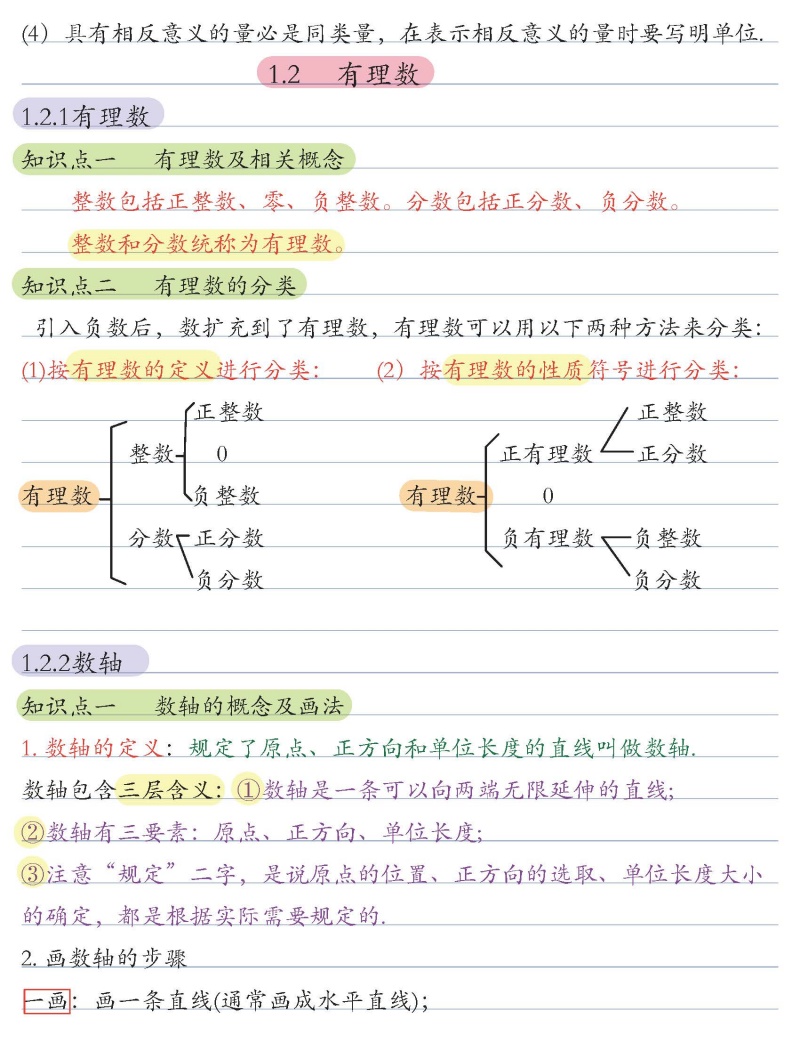 (4）具有相反意义的量必是同类量，在表示相反意义的量时要写明单位.
1.2 有理数
1.2.1有理数
知识点一 有理数及相关概念
整数包括正整数、零、负整数。分数包括正分数、负分数。
整数和分数统称为有理数。
知识点二 有理数的分类
引入负数后，数扩充到了有理数，有理数可以用以下两种方法来分类：
(1)按有理数的定义进行分类： (2）按有理数的性质符号进行分类：
正整数 正整数
整数 0 正有理数 正分数
有理数 负整数 有理数 0
分数 正分数 负有理数 负整数
负分数 负分数
1.2.2数轴
知识点一 数轴的概念及画法
1. 数轴的定义：规定了原点、正方向和单位长度的直线叫做数轴.
数轴包含三层含义：①数轴是一条可以向两端无限延伸的直线;
②数轴有三要素：原点、正方向、单位长度;
③注意“规定”二字，是说原点的位置、正方向的选取、单位长度大小
的确定，都是根据实际需要规定的.
2. 画数轴的步骤
一画：画一条直线(通常画成水平直线)；